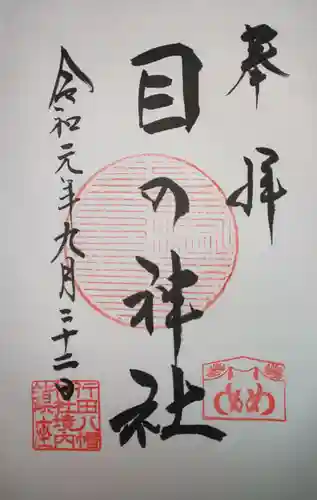 奉拝
目の神社
令和元年九月二十二日
行田八幡
社境内
鎮座
めめ